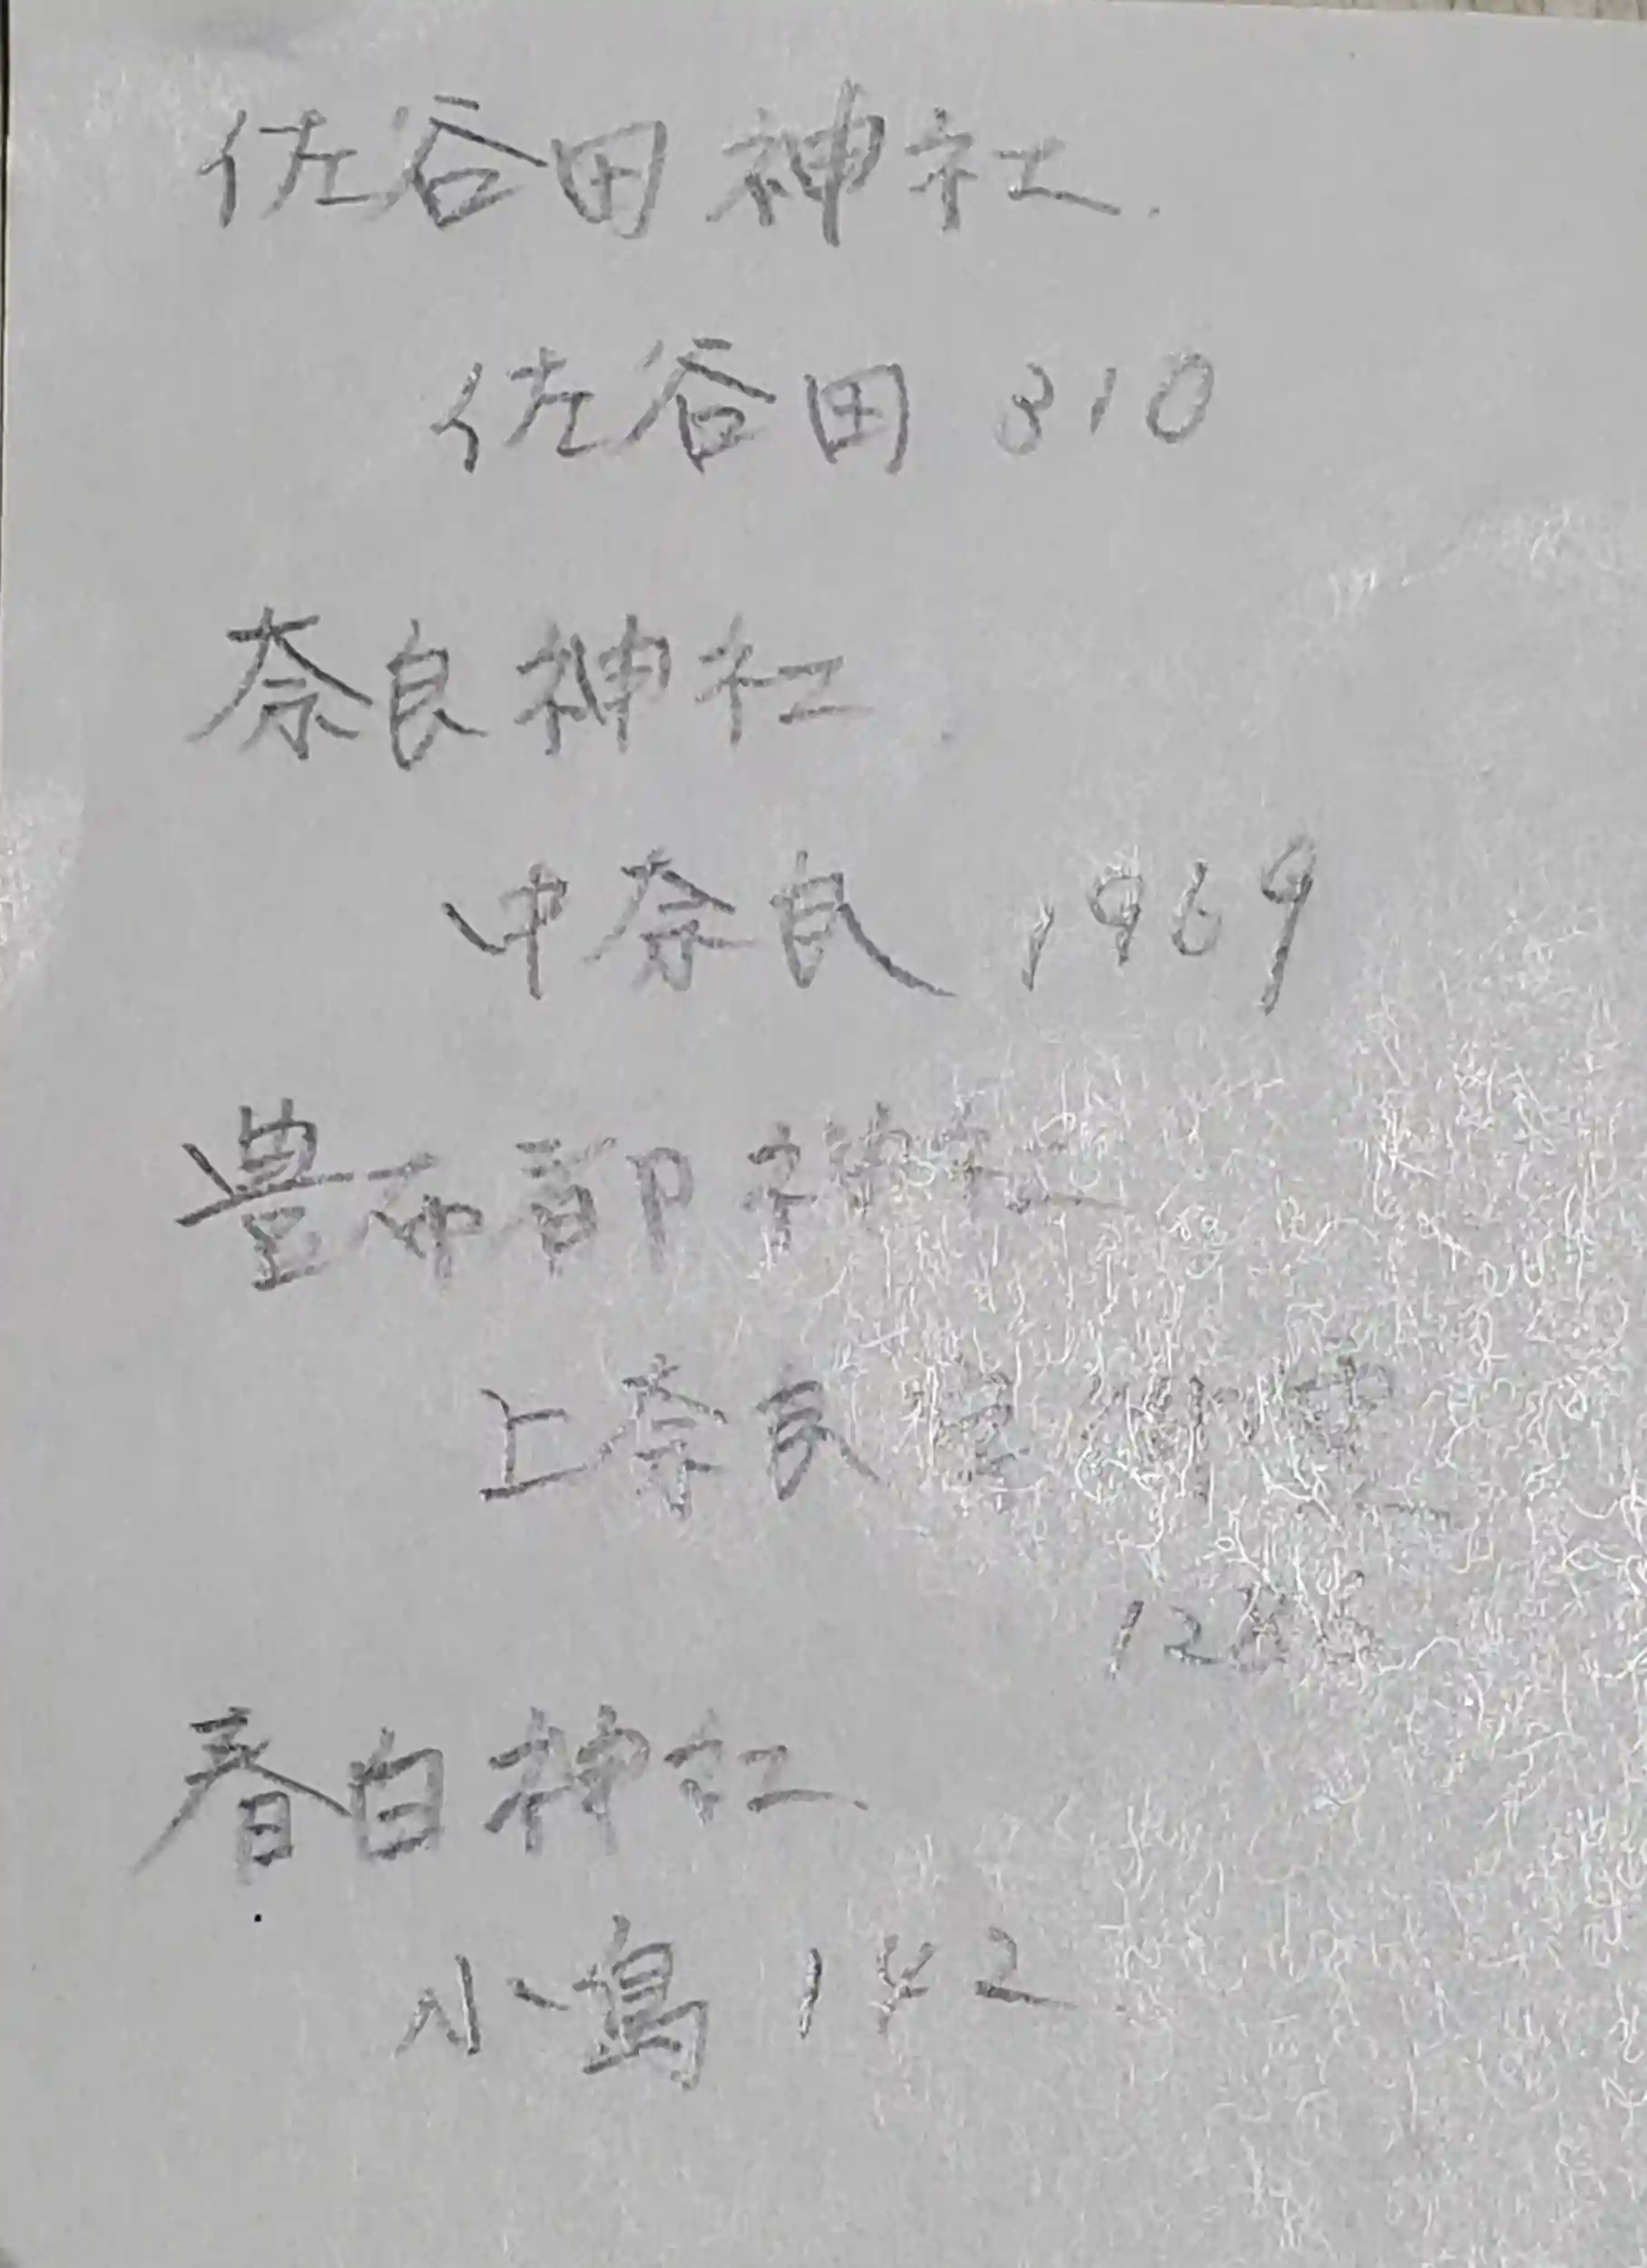 佐谷田神社
佐谷田 310
奈良神社
中奈良 1969
豊布都神社
上奈良
12
春日神社
小島 142